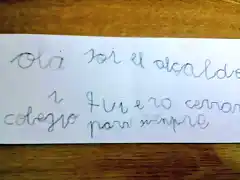 Olá soi el alcalde
i quiero cerrar
colegio para sienpre